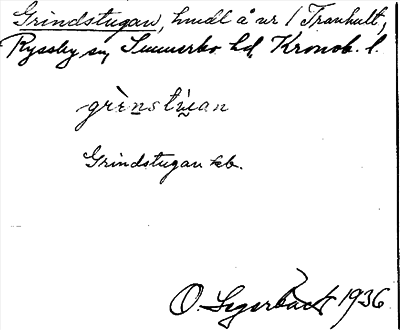 Grindstugan, hmdl å nr 1 Tranhult,
Ryssby sn, Sunnerbo hd, Kronob. l.
grènstùgan
Grindstugan kb.
O. Segerbäck 1936